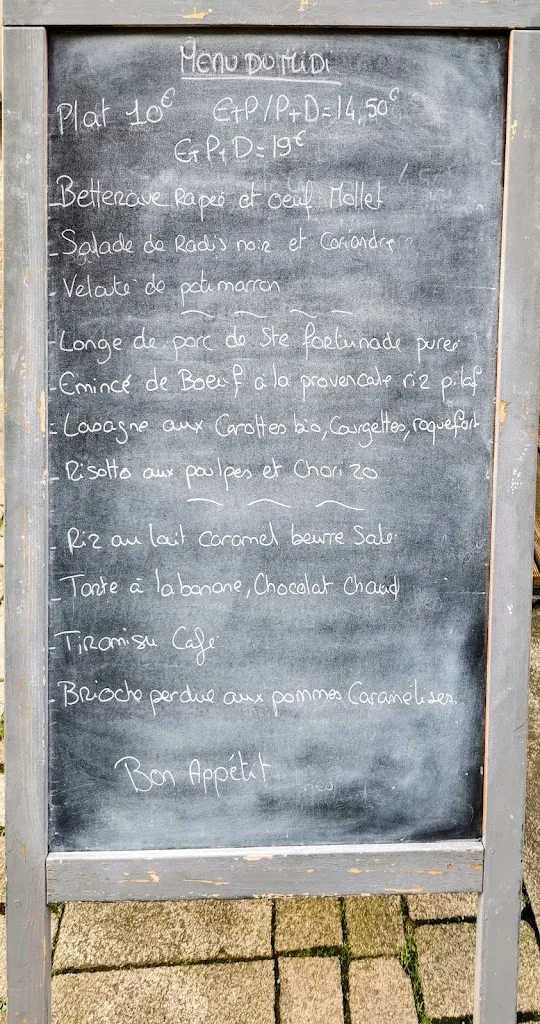 MENU DU MIDI
Plat 10€ E+P/P+D=14,50€
E+P+D=19€
- Betterave Rapée et oeuf Mollet
- Salade de Radis noir et Coriandre
- Velouté de potimarron
- Longe de porc de Ste fortunade purée
- Emincé de Boeuf à la provencale riz pilaf
- Lasagne aux Carottes bio, Courgettes, roquefort
- Risotto aux poulpes et Chorizo
- Riz au lait caramel beurre Salé
- Tarte à la banane, Chocolat Chaud
- Tiramisu Café
- Brioche perdue aux pommes Caramélisés
Bon Appétit